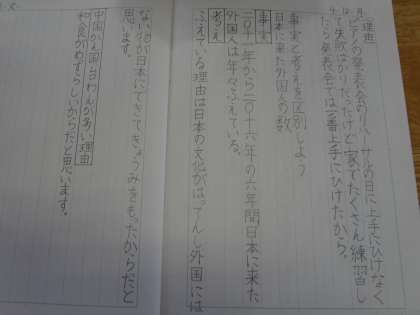 理由
ピアノの発表会のリハーサルの日に上手にひけなく
て失敗ばかりだったけど家でたくさん練習し
たら発表会では一番上手にひけたから。
事実と考えを区別しよう
日本に来た外国人の数
事実
二〇十一年から二〇十六年の六年間日本に来た
外国人は年々ふえている。
考え
ふえている理由は日本の文化がはってんし外国には
ない物が日本にできてきょうみをもったからだと
思います。
中国、台わんが多い理由
和食がめずらしいからだと思います。